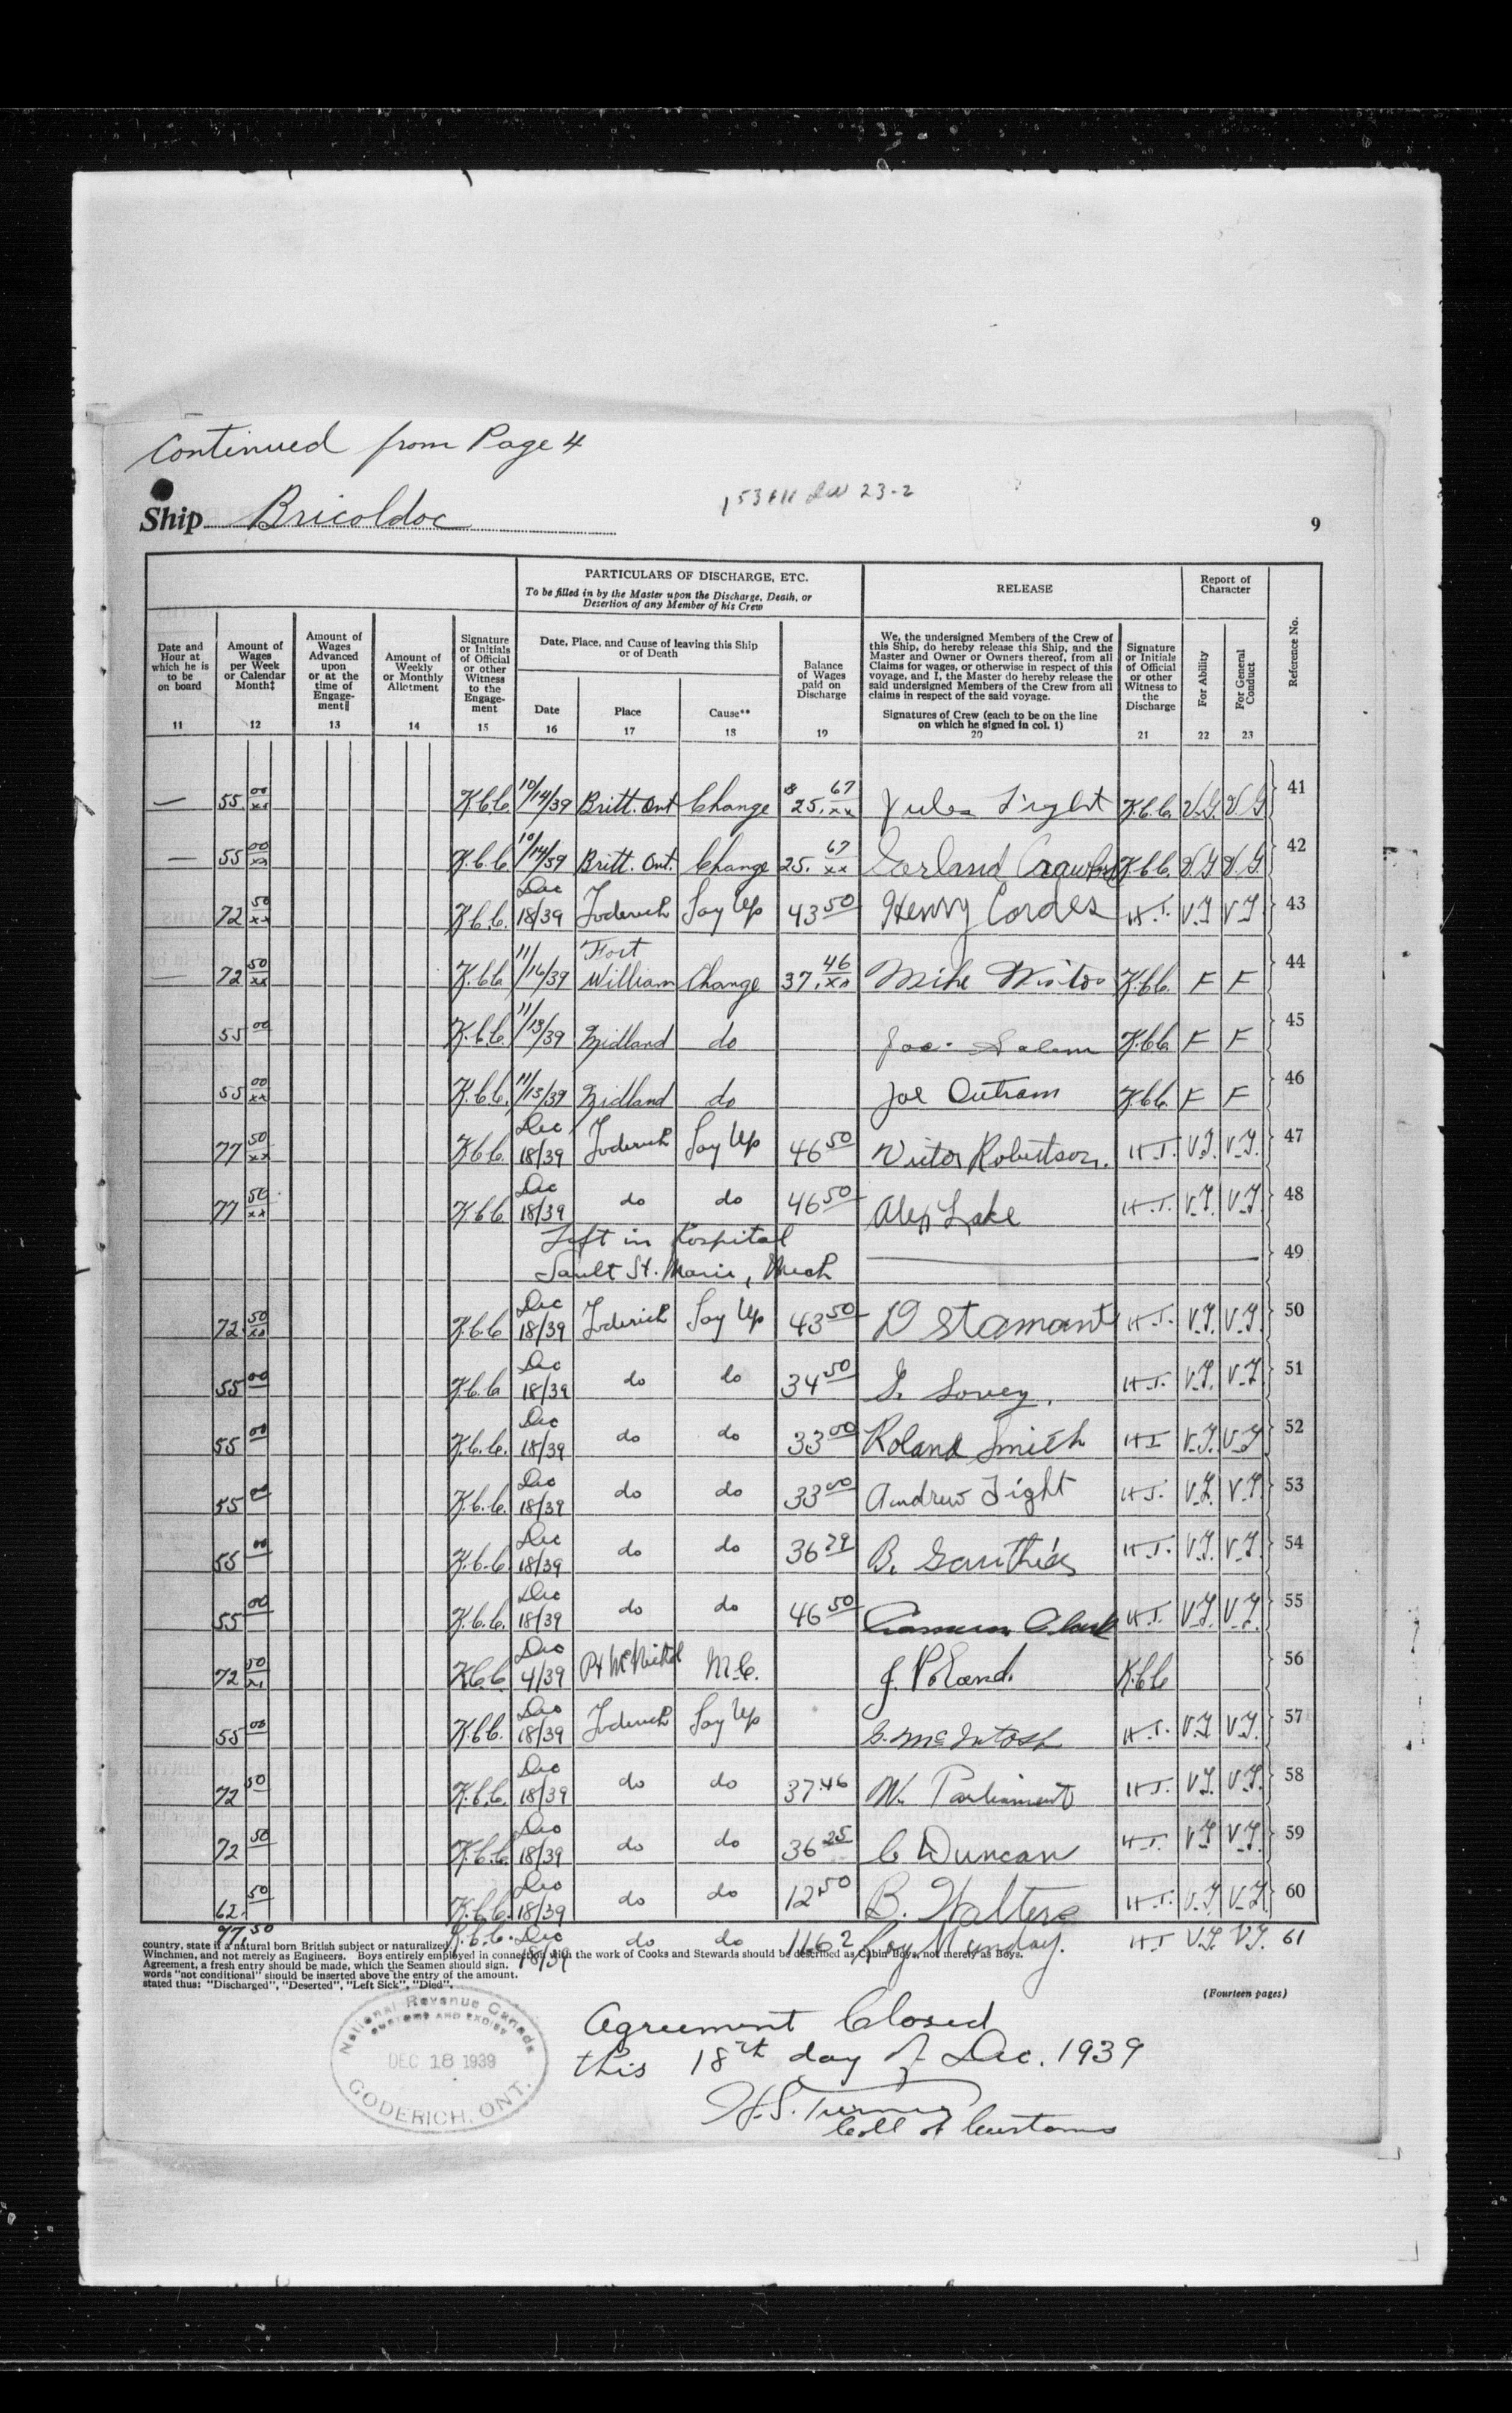 Continued from Page 4
Ship Bricoldoc
9
PARTICULARS OF DISCHARGE, ETC.
To be filled in by the Master upon the Discharge, Death, or
Desertion of any Member of his Crew
RELEASE
Report of
Character
Reference No.
Date and
Hour at
which he is
to be
on board
11
Amount of
Wages
per Week
or Calendar
Month‡
12
Amount of
Wages
Advanced
upon
or at the
time of
Engage-
ment‖
13
Amount of
Weekly
or Monthly
Allotment
14
Signature
or Initials
of Official
or other
Witness
to the
Engage-
ment
15
Date, Place, and Cause of leaving this Ship
or of Death
Date
16
Place
17
Cause**
18
Balance
of Wages
paid on
Discharge
19
We, the undersigned Members of the Crew of
this Ship, do hereby release this Ship, and the
Master and Owner or Owners thereof, from all
Claims for wages, or otherwise in respect of this
voyage, and I, the Master do hereby release the
said undersigned Members of the Crew from all
claims in respect of the said voyage.
Signatures of Crew (each to be on the line
on which he signed in col. 1)
20
Signature
or Initials
of Official
or other
Witness to
the
Discharge
21
For Ability
22
For General
Conduct
23
— 55 00/xx K.C.C. 10/14/39 Britt. Ont Change $25.67/xx Jules Tight K.C.C. V.G. V.G 41
— 55 00/xx K.C.C 10/14/39 Britt. Ont. Change 25.67/xx Garland Crawford K.C.C. V.G V.G. 42
72 50/xx K.C.C. Dec 18/39 Goderich Lay Up 43 50 Henry Cordes H.T. V.G V.G. 43
— 72 50/xx K.C.C. 11/16/39 Fort William Change 37.46/xx Mike K.C.C. F F 44
55 00 K.C.C. 11/13/39 Midland do Joe Salem K.C.C F F 45
55 00/xx K.C.C. 11/13/39 Midland do Joe Outram K.C.C. F F 46
77 50/xx K.C.C. Dec 18/39 Goderich Lay Up 46 50 Victor Robertson. H.T. V.G. V.G. 47
77 50/xx K.C.C Dec 18/39 do do 46 50 Alex Lake H.T. V.G. V.G. 48
Left in Hospital
Sault St. Marie, Mich 49
72 50/xx K.C.C Dec 18/39 Goderich Lay Up 43 50 D Stamant H.T. V.G. V.G. 50
55 00 K.C.C Dec 18/39 do do 34 50 Lovey. H.T. V.G. V.G 51
55 00 K.C.C. Dec 18/39 do do 33 00 Roland Smith H.T V.G. V.G 52
55 00 K.C.C. Dec 18/39 do do 33 00 Andrew Tight H.T. V.G. V.G. 53
55 00 K.C.C Dec 18/39 do do 36 79 B. Gauthier H.T. V.G. V.G. 54
55 00 K.C.C. Dec 18/39 do do 46 50 Cameron Clark H.T. V.G. V.G. 55
72 50 K.C.C. Dec 4/39 Pt McNichol M.C. J. Poland. K.C.C 56
55 00 K.C.C. Dec 18/39 Goderich Lay Up G. McIntosh H.T. V.G V.G. 57
72 50 K.C.C. Dec 18/39 do do 37.46 W. Parliament H.T. V.G. V.G. 58
72 50 K.C.C. Dec 18/39 do do 36 25 C Duncan H.T. V.G V.G. 59
62. 50 K.C.C. Dec 18/39 do do 12.50 B. Walters H.T. V.G V.G. 60
97.50 K.C.C. Dec 18/39 do do 116 2 Roy Munday. H.T V.G. V.G. 61
country, state if a natural born British subject or naturalized.
Winchmen, and not merely as Engineers. Boys entirely employed in connection with the work of Cooks and Stewards should be described as Cabin Boys, not merely as Boys.
Agreement, a fresh entry should be made, which the Seamen should sign.
words "not conditional" should be inserted above the entry of the amount.
stated thus: "Discharged", "Deserted", "Left Sick", "Died".
(Fourteen pages)
National Revenue Canada
CUSTOMS AND EXCISE
DEC 18 1939
GODERICH, ONT.
Agreement Closed
this 18th day of Dec. 1939
H.S. Turner
Coll of Customs